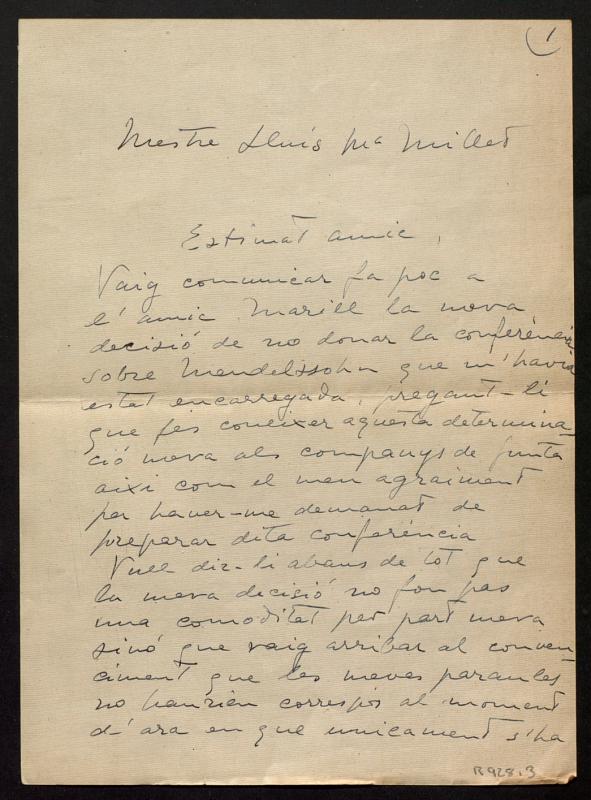 1
Mestre Lluís Mª Millet
Estimat amic,
Vaig comunicar fa poc a
l'amic Marill la meva
decisió de no donar la conferència
sobre Mendelssohn que m'havia
estat encarregada, pregant-li
que fés coneixer aquesta determina-
ció meva als companys de Junta
aixi com el meu agraiment
per haver-me demanat de
preparar dita conferéncia
Vull dir-li abans de tot que
la meva decisió no fou pas
una comoditat per part meva
sinó que vaig arribar al conven-
ciment que les meves paraules
no haurien correspós al moment
d'ara en que unicament s'ha
R.928.3